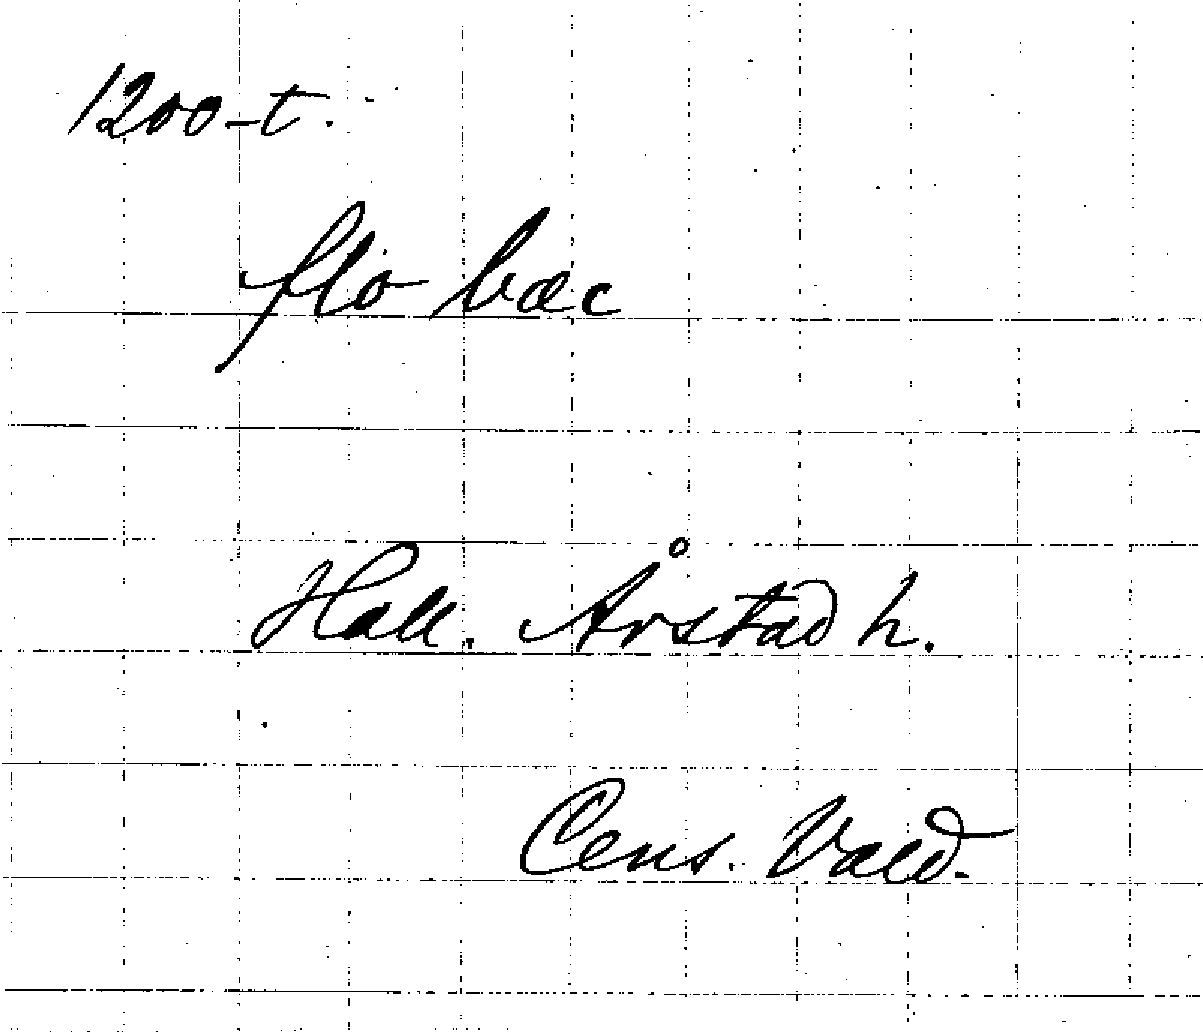 1200-t.
flo bæc
Hall. Årstad h.
Cens. Vald.